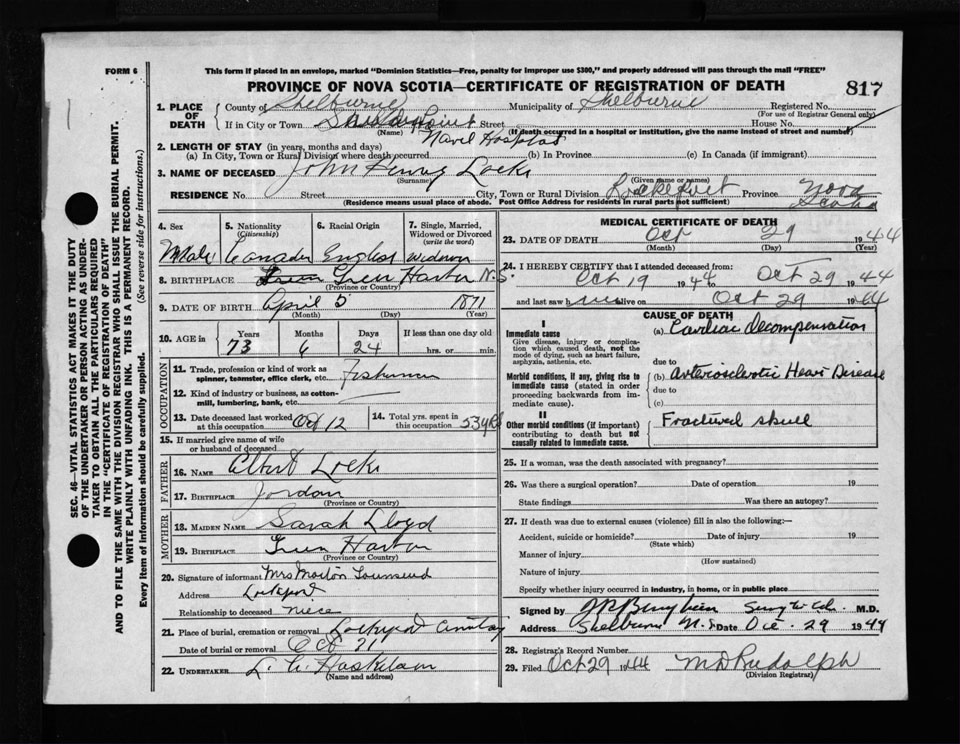 FORM 6
This form if placed in an envelope, marked "Dominion Statistics—Free, penalty for improper use $300," and properly addressed will pass through the mail "FREE"
PROVINCE OF NOVA SCOTIA—CERTIFICATE OF REGISTRATION OF DEATH
817
1. PLACE OF DEATH
County of Shelburne Municipality of Shelburne Registered No.
(For use of Registrar General only)
If in City or Town Point Street House No.
(Name) (If death occurred in a hospital or institution, give the name instead of street and number)
Naval Hospital
2. LENGTH OF STAY (in years, months and days)
(a) In City, Town or Rural Division where death occurred (b) In Province (c) In Canada (if immigrant)
3. NAME OF DECEASED John Henry Locke
(Surname) (Given name or names)
RESIDENCE No. Street City, Town or Rural Division Province Nova Scotia
(Residence means usual place of abode. Post Office Address for residents in rural parts not sufficient)
4. Sex Male
5. Nationality (Citizenship) Canadian
6. Racial Origin English
7. Single, Married, Widowed or Divorced (write the word) widower
8. BIRTHPLACE Green Harbor N.S.
(Province or Country)
9. DATE OF BIRTH April 5 1871
(Month) (Day) (Year)
10. AGE in Years Months Days If less than one day old
73 6 24 hrs. or min.
OCCUPATION
11. Trade, profession or kind of work as spinner, teamster, office clerk, etc. fisherman
12. Kind of industry or business, as cotton-mill, lumbering, bank, etc.
13. Date deceased last worked at this occupation Oct 12
14. Total yrs. spent in this occupation 53 yrs
15. If married give name of wife or husband of deceased
FATHER
16. NAME Albert Locke
17. BIRTHPLACE Jordan
(Province or Country)
MOTHER
18. MAIDEN NAME Sarah Lloyd
19. BIRTHPLACE Green Harbor
(Province or Country)
20. Signature of informant Mrs Morton Townsend
Address Lockeport
Relationship to deceased niece
21. Place of burial, cremation or removal Lockeport
Date of burial or removal Oct 31
22. UNDERTAKER
(Name and address)
MEDICAL CERTIFICATE OF DEATH
23. DATE OF DEATH Oct 29 1944
(Month) (Day)
24. I HEREBY CERTIFY that I attended deceased from:
Oct 19 1944 to Oct 29 1944
and last saw him alive on Oct 29 1944
CAUSE OF DEATH
I
Immediate cause
Give disease, injury or complication which caused death, not the mode of dying, such as heart failure, asphyxia, asthenia, etc.
(a) Cardiac Decompensation
due to
Morbid conditions, if any, giving rise to immediate cause (stated in order proceeding backwards from immediate cause).
(b) Arteriosclerotic Heart Disease
due to
(c)
II
Other morbid conditions (if important) contributing to death but not causally related to immediate cause.
Fractured skull
25. If a woman, was the death associated with pregnancy?
26. Was there a surgical operation? Date of operation 19
State findings Was there an autopsy?
27. If death was due to external causes (violence) fill in also the following:—
Accident, suicide or homicide? Date of injury 19
(State which)
Manner of injury
(How sustained)
Nature of injury
Specify whether injury occurred in industry, in home, or in public place
Signed by M.D.
Address Shelburne N.S. Date Oct. 29 1944
28. Registrar's Record Number
29. Filed Oct 29 1944 M D Rudolph
(Division Registrar)
SEC. 46—VITAL STATISTICS ACT MAKES IT THE DUTY OF THE UNDERTAKER OR PERSON ACTING AS UNDERTAKER TO OBTAIN ALL THE PARTICULARS REQUIRED IN THE "CERTIFICATE OF REGISTRATION OF DEATH" AND TO FILE THE SAME WITH THE DIVISION REGISTRAR WHO SHALL ISSUE THE BURIAL PERMIT.
WRITE PLAINLY WITH UNFADING INK. THIS IS A PERMANENT RECORD.
Every item of Information should be carefully supplied. (See reverse side for instructions.)